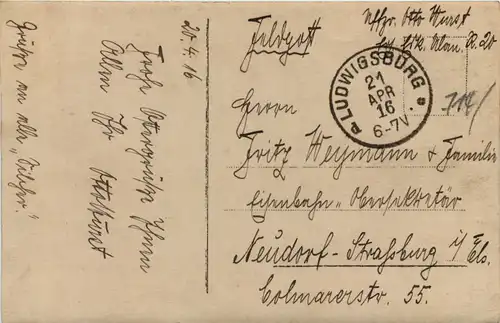 20.4.16
Frohe Ostergrüße Ihnen
Allen Ihr
Otto Wurst
Grüße an alle
Feldpost
Uffz. Otto Wurst
Ulan. R. 20
LUDWIGSBURG
21
APR
16
6-7V
Herrn
Fritz Weymann & Familie
Eisenbahn-Obersekretär
Neudorf-Straßburg i/Els.
Colmarerstr. 55.